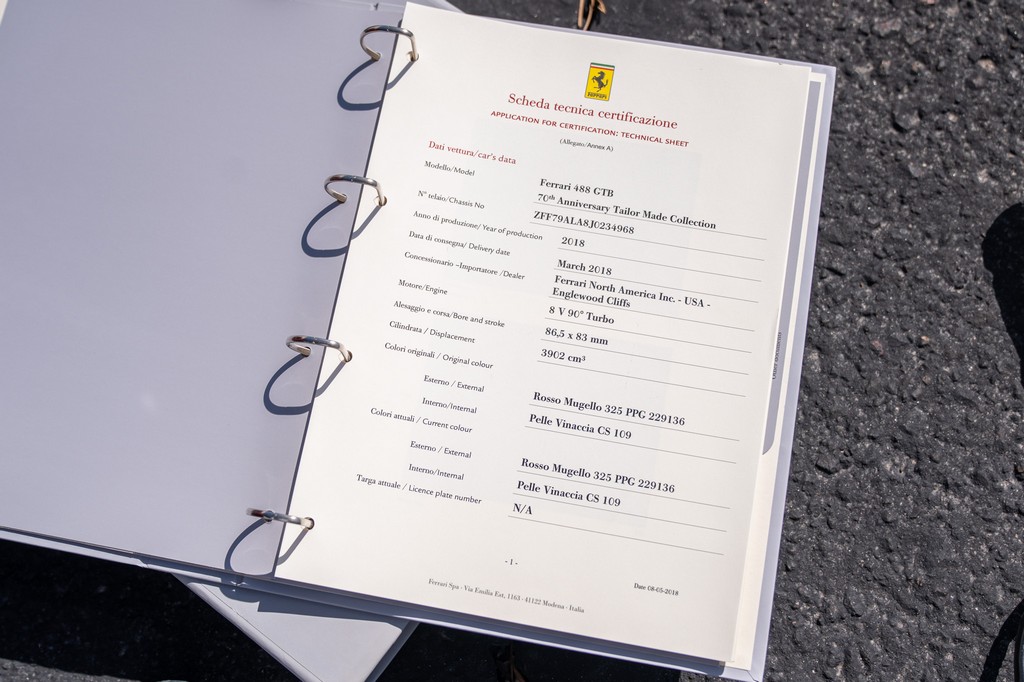 Ferrari
Scheda tecnica certificazione
APPLICATION FOR CERTIFICATION: TECHNICAL SHEET
(Allegato/Annex A)
Dati vettura/car's data
Modello/Model
Ferrari 488 GTB
70th Anniversary Tailor Made Collection
N° telaio/Chassis No
ZFF79ALA8J0234968
Anno di produzione/ Year of production
2018
Data di consegna/ Delivery date
March 2018
Concessionario –Importatore /Dealer
Ferrari North America Inc. - USA -
Englewood Cliffs
Motore/Engine
8 V 90° Turbo
Alesaggio e corsa/Bore and stroke
86,5 x 83 mm
Cilindrata / Displacement
3902 cm³
Colori originali / Original colour
Esterno / External
Rosso Mugello 325 PPG 229136
Interno/Internal
Pelle Vinaccia CS 109
Colori attuali / Current colour
Esterno / External
Rosso Mugello 325 PPG 229136
Interno/Internal
Pelle Vinaccia CS 109
Targa attuale / Licence plate number
N/A
- 1 -
Date 08-05-2018
Ferrari Spa - Via Emilia Est, 1163 - 41122 Modena - Italia